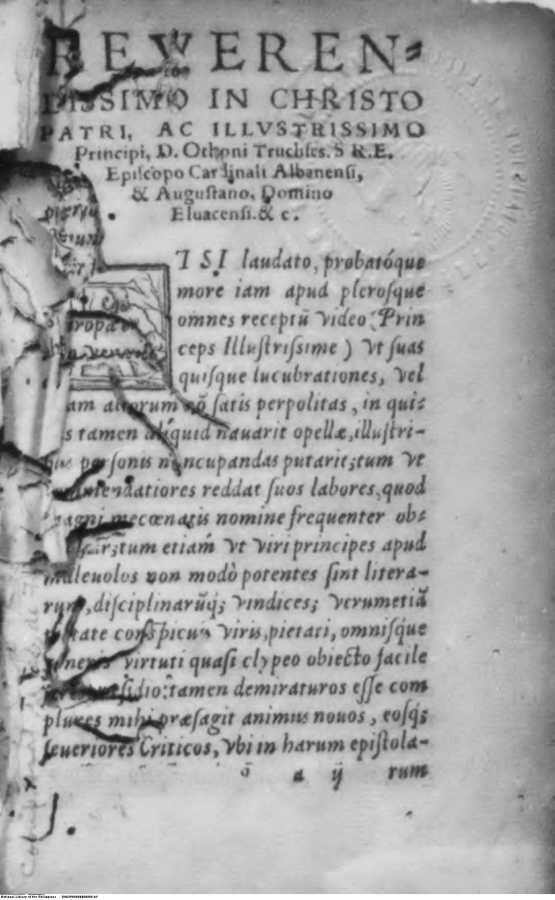 REVEREN-
DISSIMO IN CHRISTO
PATRI, AC ILLVSTRISSIMO
Principi, D. Othoni Truchses. S R.E.
Episcopo Cardinali Albanensi,
& Augustano, Domino
Eluacensi. & c.
ISI laudato, probatóque
more iam apud plerosque
omnes receptū video (Prin
ceps Illustrissime) vt suas
quisque lucubrationes, vel
satis perpolitas, in qui-
tamen aliquid nauarit opellæ, illustri-
personis nuncupandas putarit; tum vt
reddat suos labores, quod
mecœnatis nomine frequenter obs-
tum etiam vt viri principes apud
maleuolos non modò potentes sint litera-
rum, disciplinarūq; vindices; verumetiā
conspicuis viris, pietati, omnisque
generis virtuti quasi clypeo obiecto facile
tamen demiraturos esse com
plures mihi præsagit animus nouos, eosq;
seueriores Criticos, vbi in harum epistola-
a ij rum
National Library of the Philippines